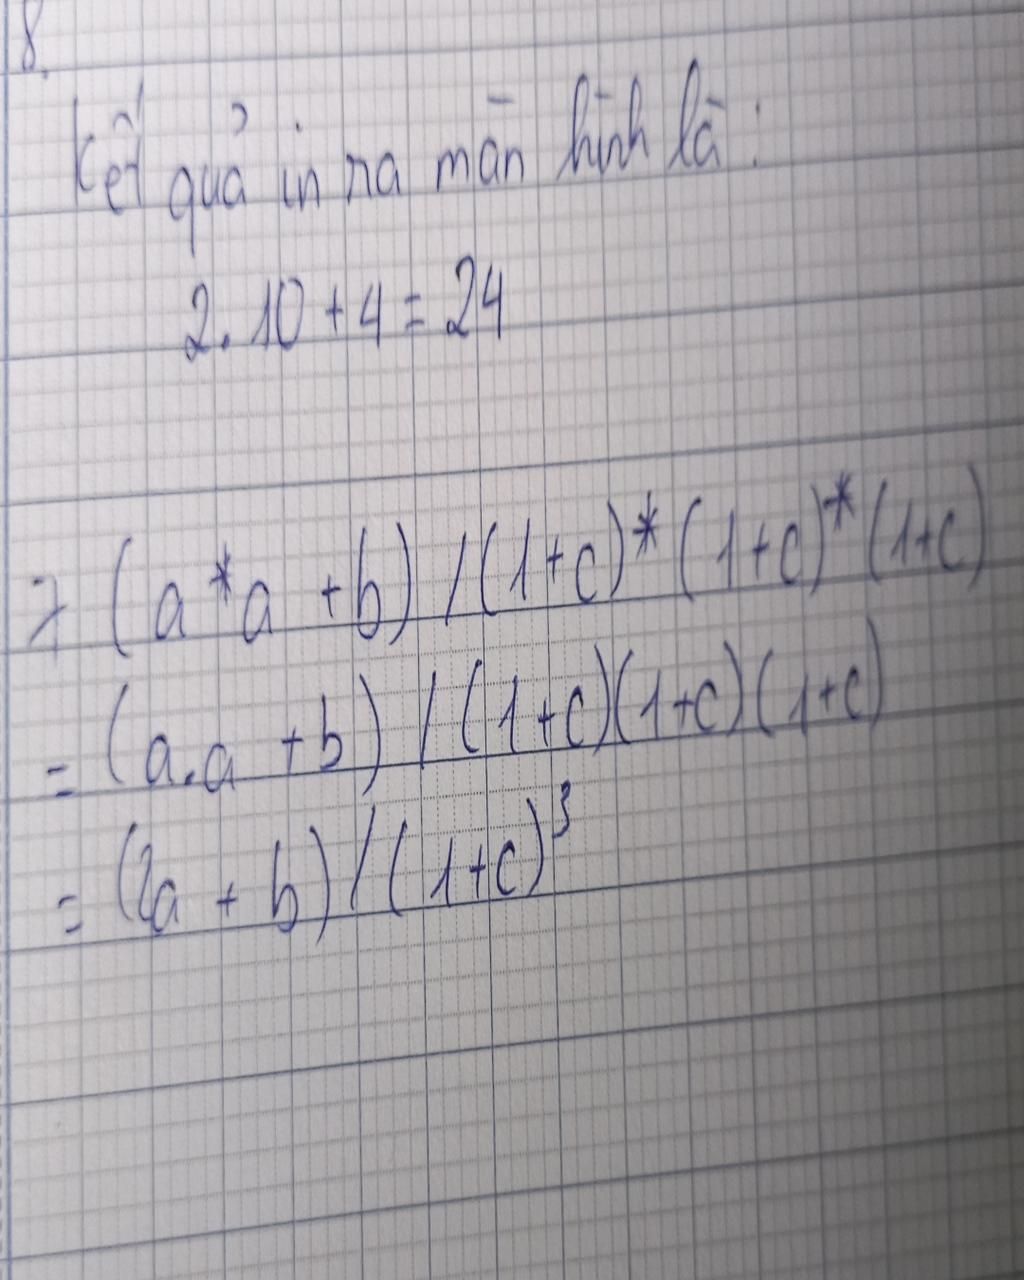 8.
Kết quả in ra màn hình là:
2. 10 + 4 = 24
7 (a*a + b) / (1+c)* (1+c)* (1+c)
= (a.a + b) / (1+c)(1+c)(1+c)
= (2a + b) / (1+c)³